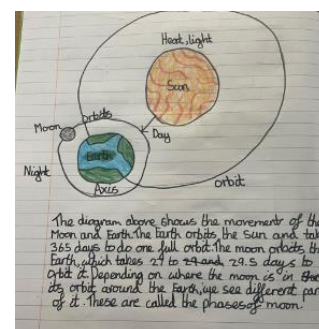 Heat, light
Sun
Moon
orbits
Day
Earth
Night
Axis
orbit
The diagram above shows the movement of the
Moon and Earth. The Earth orbits the Sun and tak
365 days to do one full orbit. The moon orbits th
Earth, which takes 27 to 29 and 29.5 days to
orbit it. Depending on where the moon is in
its orbit around the Earth, we see different par
of it. These are called the phases of moon.